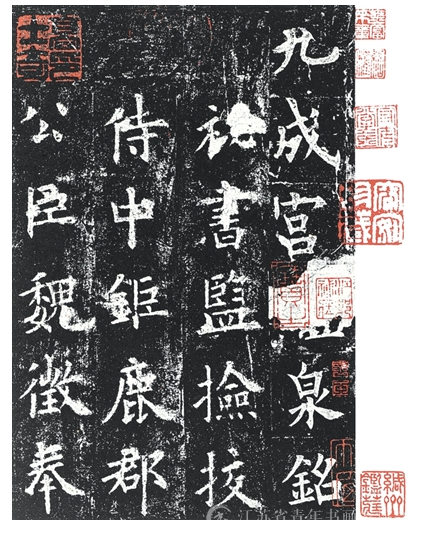 九成宫泉銘
祕書監撿挍
侍中鉅鹿郡
公臣魏徵奉
江苏省青年书画